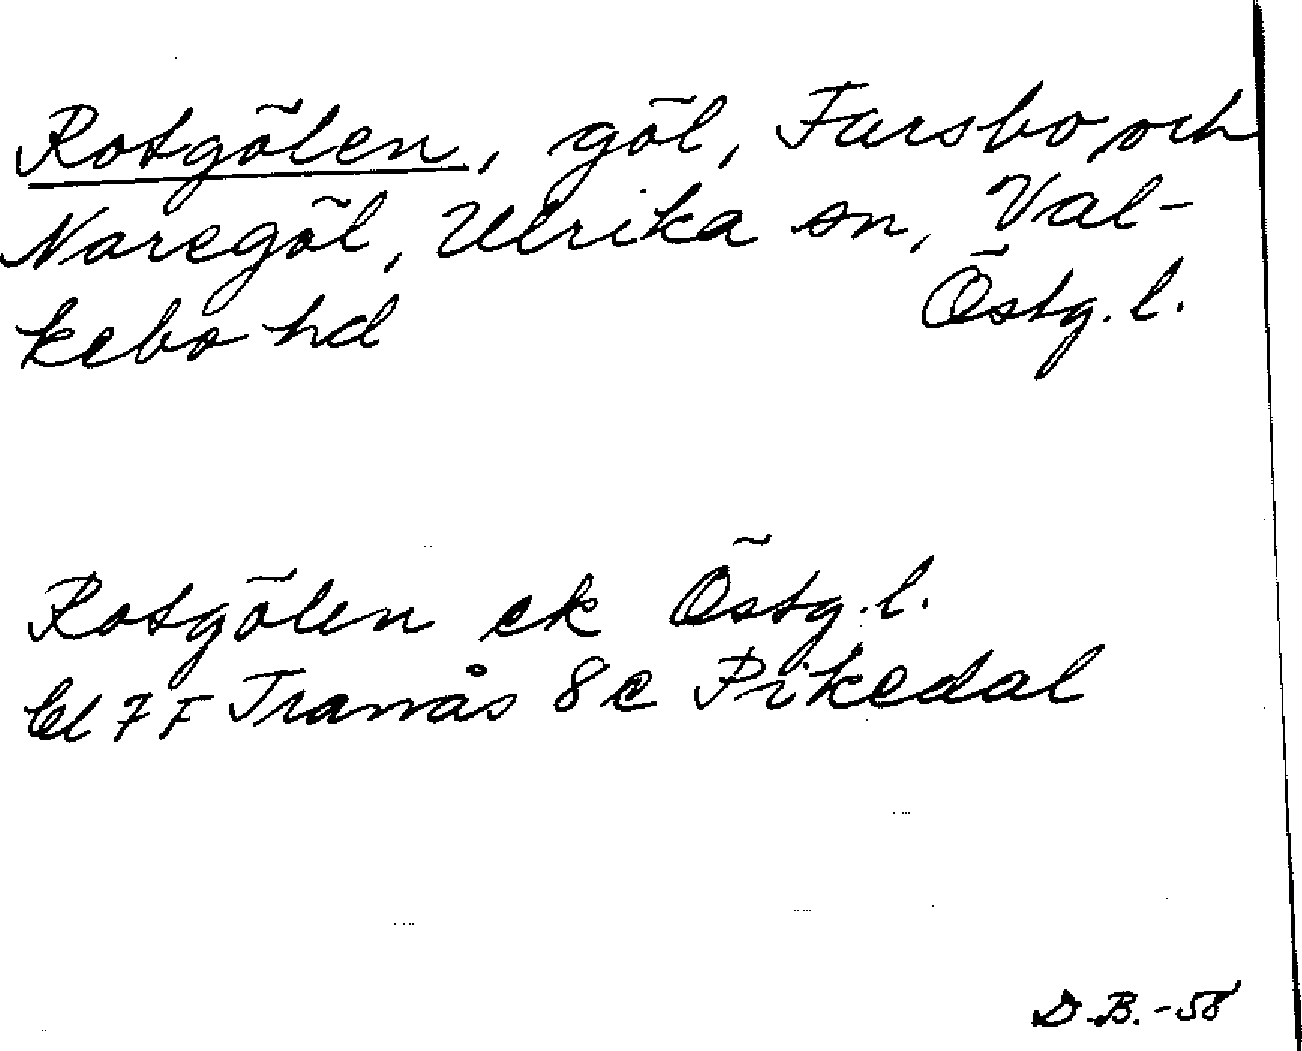 Rotgölen, göl, Farsbo och
Naregöl, Ulrika sn, Val-
kebo hd Östg. l.
Rotgölen ek Östg. l.
bl 7 F Tranås 8 e Pikedal
D.B. -58